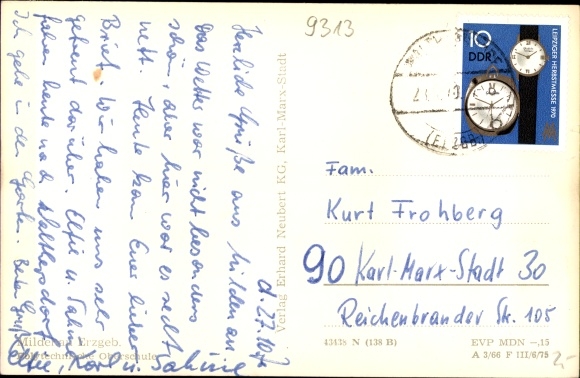 9313
10
DDR
LEIPZIGER HERBSTMESSE 1970
(ERZGEB.)
d. 27.10.70
Herzliche Grüße aus
Das Wetter war nicht besonders
schön, aber hier war es sehr
nett. Heute kam Euer lieber
Brief. Wir haben uns sehr
gefreut darüber. Elfie u. Sabine
fahren heute nach Walthersdorf
Ich gehe in den Garten. Beste Grüße
Elfie, Karl u. Sabine
Verlag Erhard Neubert KG, Karl-Marx-Stadt
Fam.
Kurt Frohberg
90 Karl-Marx-Stadt 30
Reichenbrander Str. 105
Mildenau Erzgeb.
Polytechnische Oberschule
43438 N (138 B)
EVP MDN —,15
A 3/66 F III/6/75
2,-